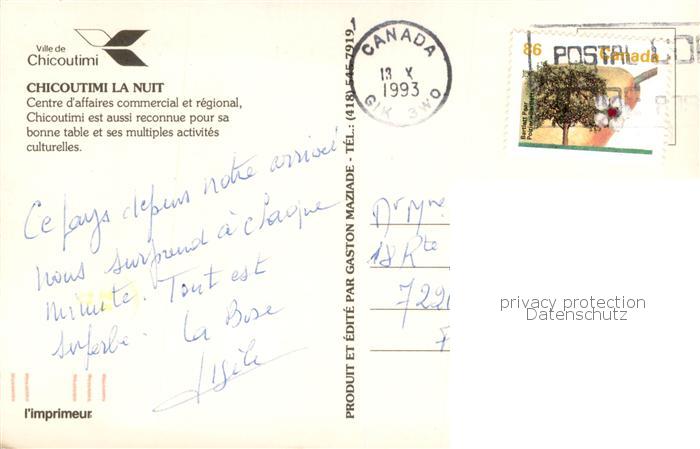 Ville de
Chicoutimi
CHICOUTIMI LA NUIT
Centre d'affaires commercial et régional,
Chicoutimi est aussi reconnue pour sa
bonne table et ses multiples activités
culturelles.
Ce pays depuis notre arrivée
nous surprend à chaque
minute. Tout est
superbe. La Bise
Gisèle
l'imprimeur
PRODUIT ET ÉDITÉ PAR GASTON MAZIADE - TÉL.: (418) 545-7919
CANADA
13 X
1993
G1K 3W0
86 Canada
Bartlett Pear
POSTAL CO
18 Rte
privacy protection
Datenschutz